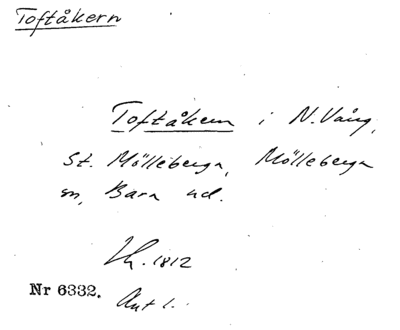 Toftåkern
Toftåkern i N. Vång,
St. Mölleberga, Mölleberga
sn, Bara hd.
1812
Nr 6332.